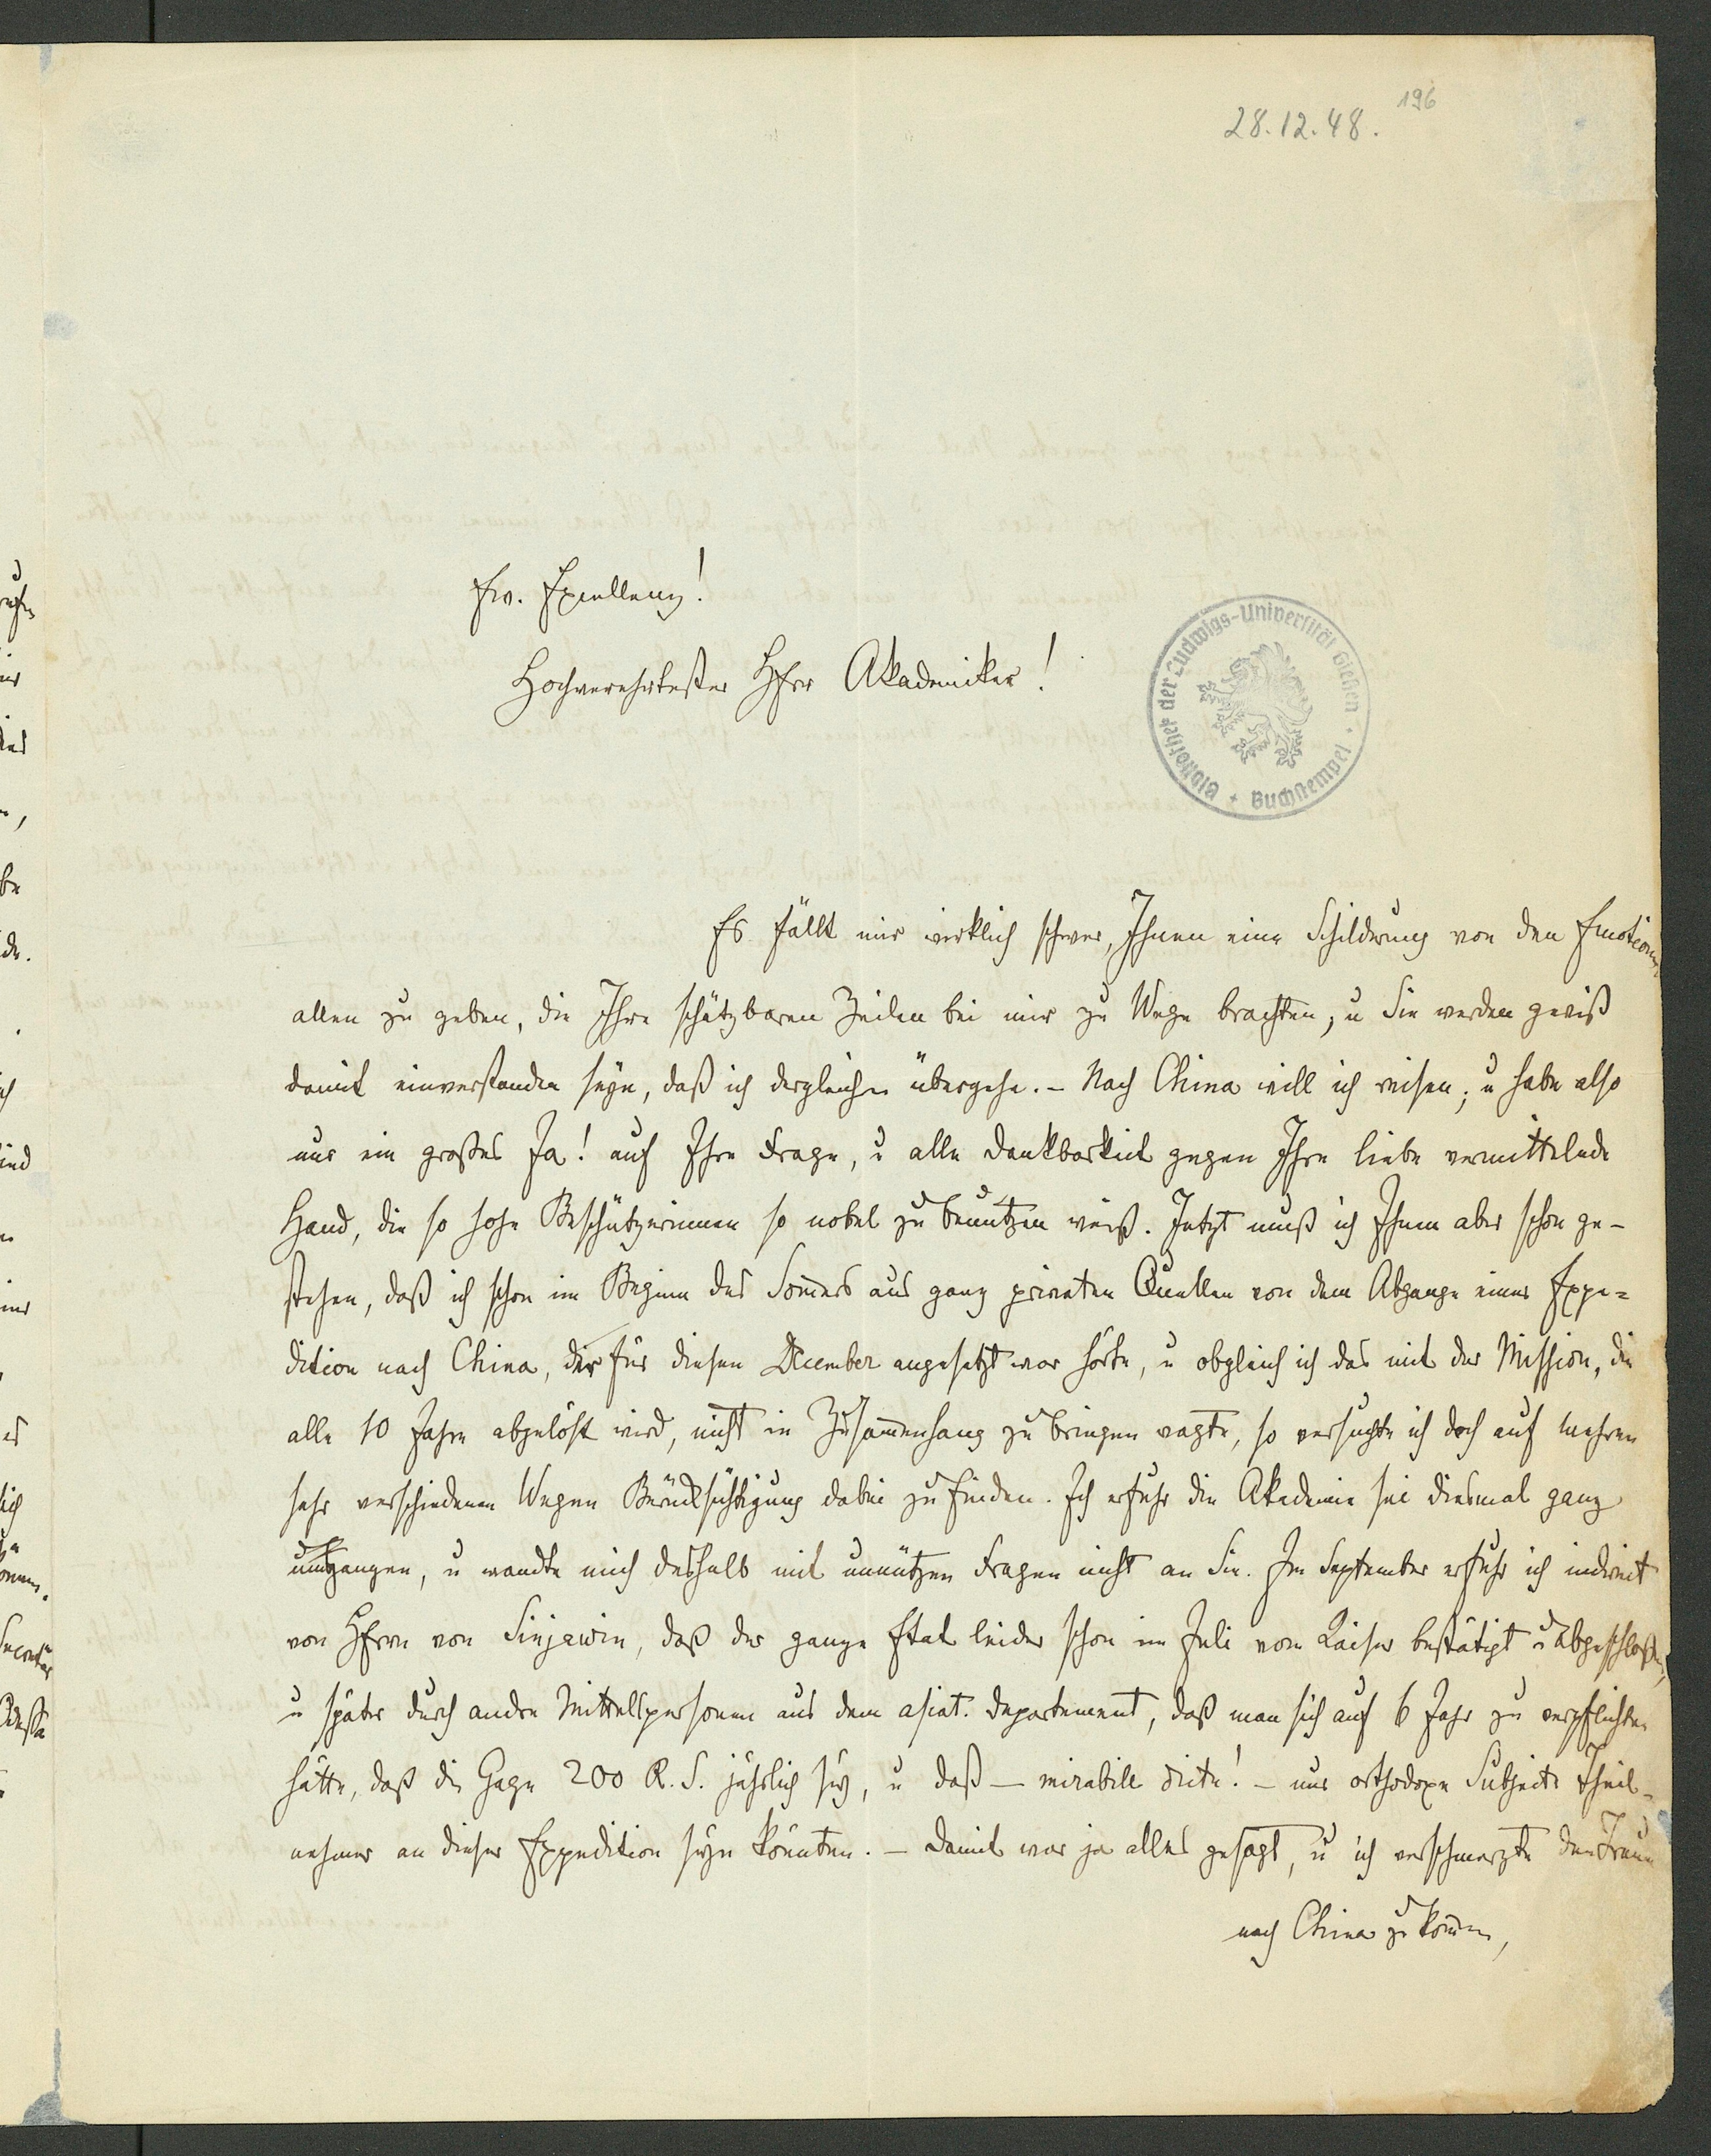 196
28.12.48.
Ew. Excellenz!
Hochverehrtester HErr Akademiker!
Bibliothek der Ludwigs-Universität Gießen · Buchstempel
Es fällt mir wirklich schwer, Ihnen eine Schilderung von den Emotionen
allen zu geben, die Ihre schätzbaren Zeilen bei mir zu Wege brachten, u Sie werden gewiß
damit einverstanden seyn, daß ich dergleichen übergehe. – Nach China will ich reisen; u habe also
nur ein großes Ja! auf Ihre Frage, u alle Dankbarkeit gegen Ihre liebe vermittelnde
Hand, die so hohe Beschützerinnen so nobel zu benutzen weiß. Jetzt muß ich Ihnen aber schon ge-
stehen, daß ich schon im Beginn des Sommers aus ganz privaten Quellen von dem Abgange einer Expe=
dition nach China, die für diesen December angesetzt war hörte, u obgleich ich das mit der Mission, die
alle 10 Jahre abgelöst wird, nicht in Zusammenhang zu bringen wagte, so versuchte ich doch auf mehren
sehr verschiedenen Wegen Berücksichtigung dabei zu finden. Ich erfuhr die Akademie sei diesmal ganz
umgangen, u wandte mich deshalb mit unnützen Fragen nicht an Sie. Im September erfuhr ich indirect
von HErrn von Sinjawin, daß der ganze Etat leider schon im Juli vom Kaiser bestätigt u abgeschlossen,
u später durch andre Mittelspersonen aus dem asiat. Departement, daß man sich auf 6 Jahr zu verpflichten
hätte, daß die Gage 200 R. S. jährlich sey, u daß – mirabile dictu! – nur orthodoxe Subjecte Theil-
nehmer an dieser Expedition seyn könnten. – Damit war ja alles gesagt, u ich verschmerzte den Traum
nach China zu kommen,